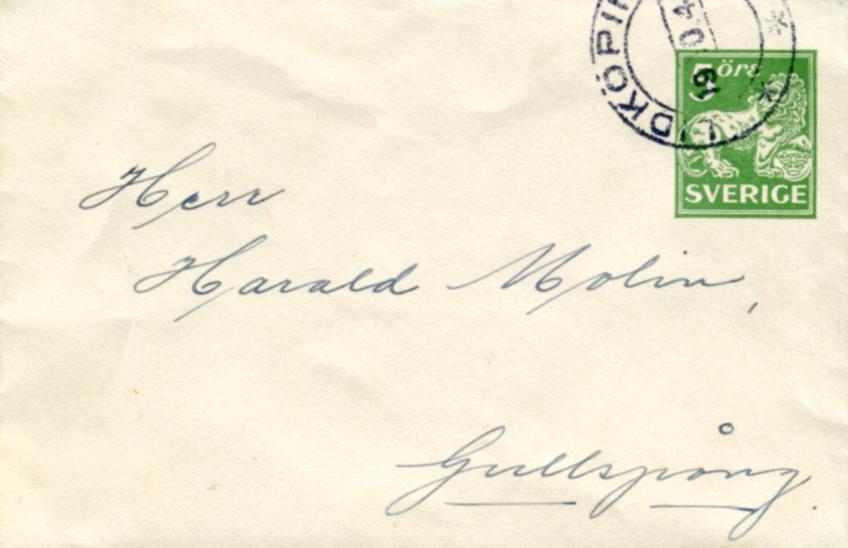 5 öre
SVERIGE
Herr
Harald Molin,
Gullspång.